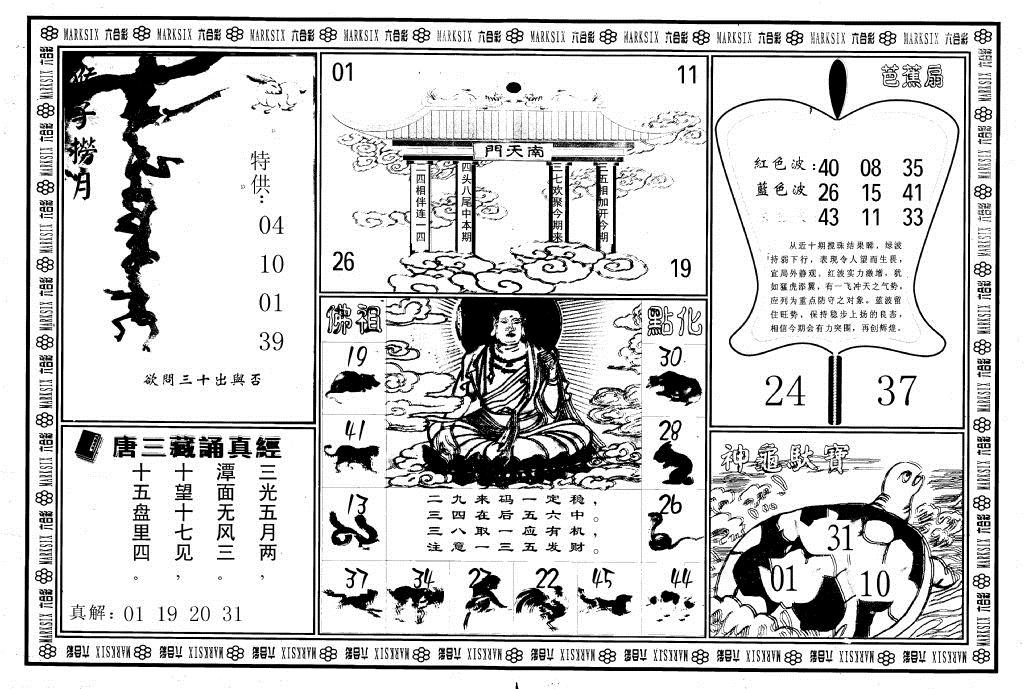 MARKSIX 六合彩 MARKSIX 六合彩 MARKSIX 六合彩 MARKSIX 六合彩 MARKSIX 六合彩 MARKSIX 六合彩 MARKSIX 六合彩 MARKSIX 六合彩 MARKSIX 六合彩 MARKSIX 六合彩
猴子捞月
特供:
04
10
01
39
欲問三十出與否
01
11
南天門
二四相伴连一四
四头八尾中本期
三七欢聚今期来
二五相加开今期
26
19
芭蕉扇
紅色波:40 08 35
藍色波 26 15 41
43 11 33
从近十期搅珠结果睇，绿波
持弱下行，表现令人望而生畏，
宜局外静观。红波实力激增，犹
如猛虎添翼，有一飞冲天之气势，
应列为重点防守之对象。蓝波留
住旺势，保持稳步上扬的良态，
相信今期会有力突围，再创辉煌。
24
37
唐三藏誦真經
三光五月两，
潭面无风三。
十望十七见，
十五盘里四。
真解: 01 19 20 31
佛祖
點化
19
30
41
28
13
26
二九来码一定稳，
三四在后五六中。
三八取一应有机，
注意一三五发财。
37
34
22
45
44
神龜馱寶
31
01
10
MARKSIX 六合彩 MARKSIX 六合彩 MARKSIX 六合彩 MARKSIX 六合彩 MARKSIX 六合彩 MARKSIX 六合彩 MARKSIX 六合彩 MARKSIX 六合彩 MARKSIX 六合彩 MARKSIX 六合彩